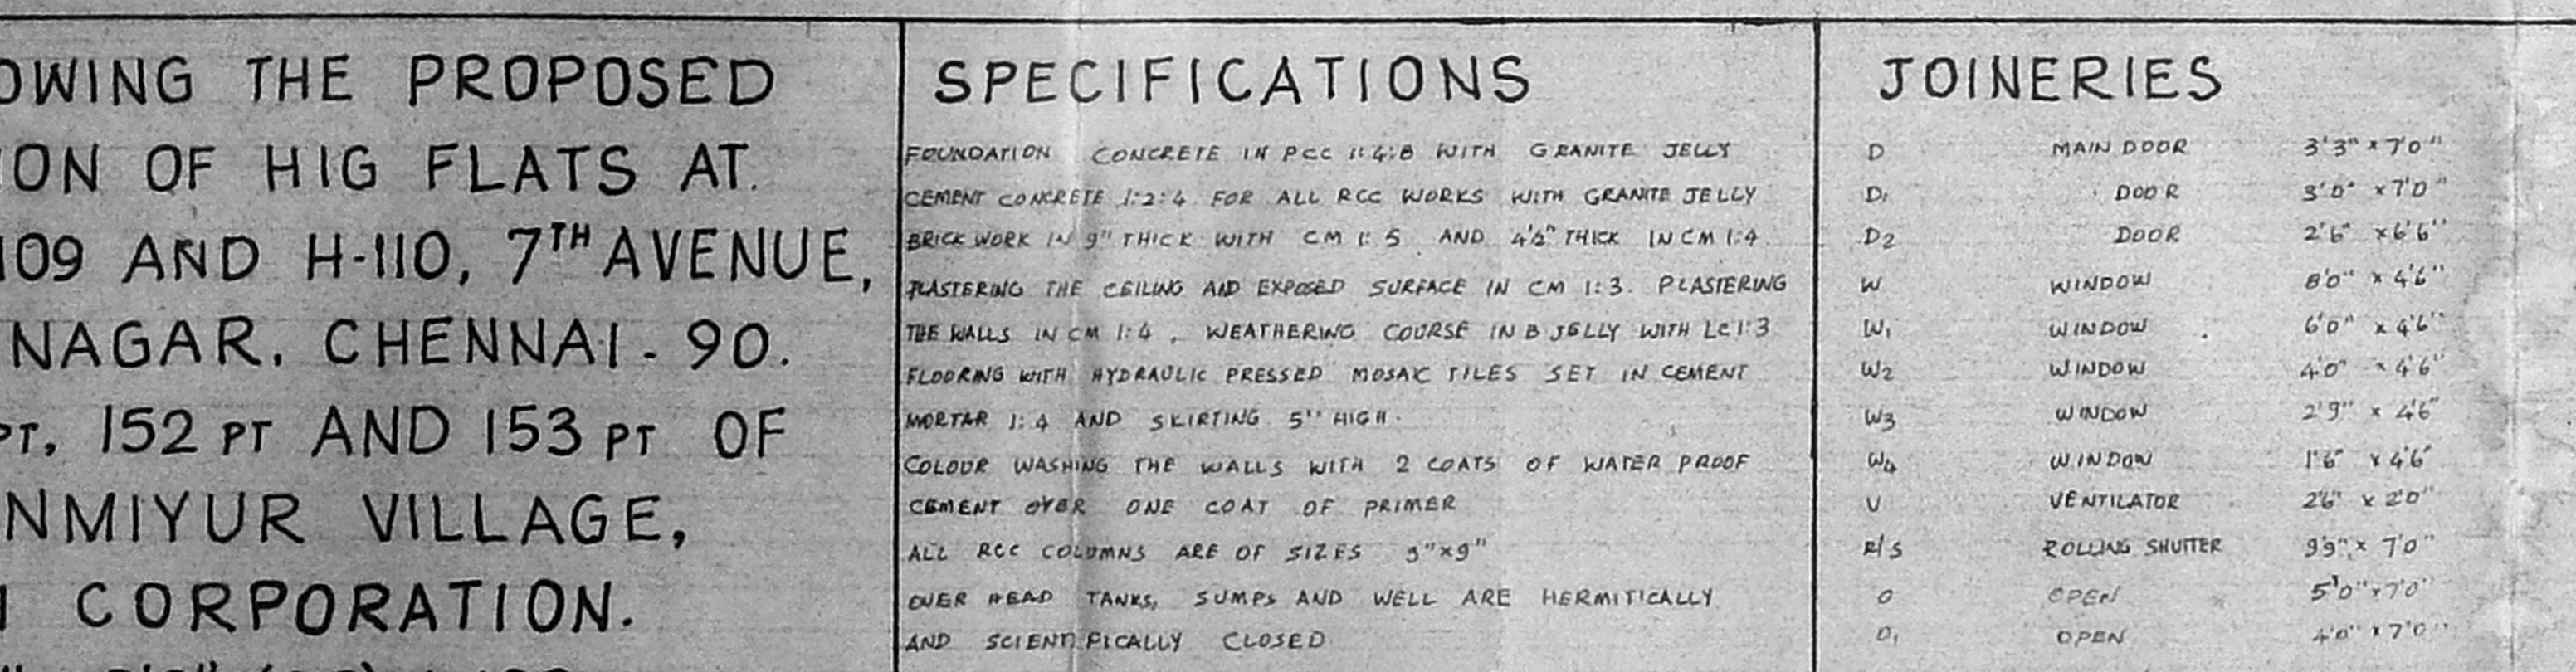 OWING THE PROPOSED
ION OF HIG FLATS AT.
109 AND H-110, 7TH AVENUE,
NAGAR. CHENNAI - 90.
PT, 152 PT AND 153 PT OF
NMIYUR VILLAGE,
CORPORATION.
SPECIFICATIONS
FOUNDATION CONCRETE IN PCC 1:4:8 WITH GRANITE JELLY
CEMENT CONCRETE 1:2:4 FOR ALL RCC WORKS WITH GRANITE JELLY
BRICK WORK IN 9" THICK WITH CM 1:5 AND 4½" THICK IN CM 1:4
PLASTERING THE CEILING AND EXPOSED SURFACE IN CM 1:3. PLASTERING
THE WALLS IN CM 1:4, WEATHERING COURSE IN B JELLY WITH LC 1:3
FLOORING WITH HYDRAULIC PRESSED MOSAIC TILES SET IN CEMENT
MORTAR 1:4 AND SKIRTING 5" HIGH.
COLOUR WASHING THE WALLS WITH 2 COATS OF WATER PROOF
CEMENT OVER ONE COAT OF PRIMER
ALL RCC COLUMNS ARE OF SIZES 9"x9"
OVER HEAD TANKS, SUMPS AND WELL ARE HERMITICALLY
AND SCIENTIFICALLY CLOSED
JOINERIES
D MAIN DOOR 3'3" x 7'0"
D1 DOOR 3'0" x 7'0"
D2 DOOR 2'6" x 6'6"
W WINDOW 8'0" x 4'6"
W1 WINDOW 6'0" x 4'6"
W2 WINDOW 4'0" x 4'6"
W3 WINDOW 2'9" x 4'6"
W4 WINDOW 1'6" x 4'6"
V VENTILATOR 2'6" x 2'0"
R/S ROLLING SHUTTER 9'9" x 7'0"
O OPEN 5'0" x 7'0"
O1 OPEN 4'0" x 7'0"